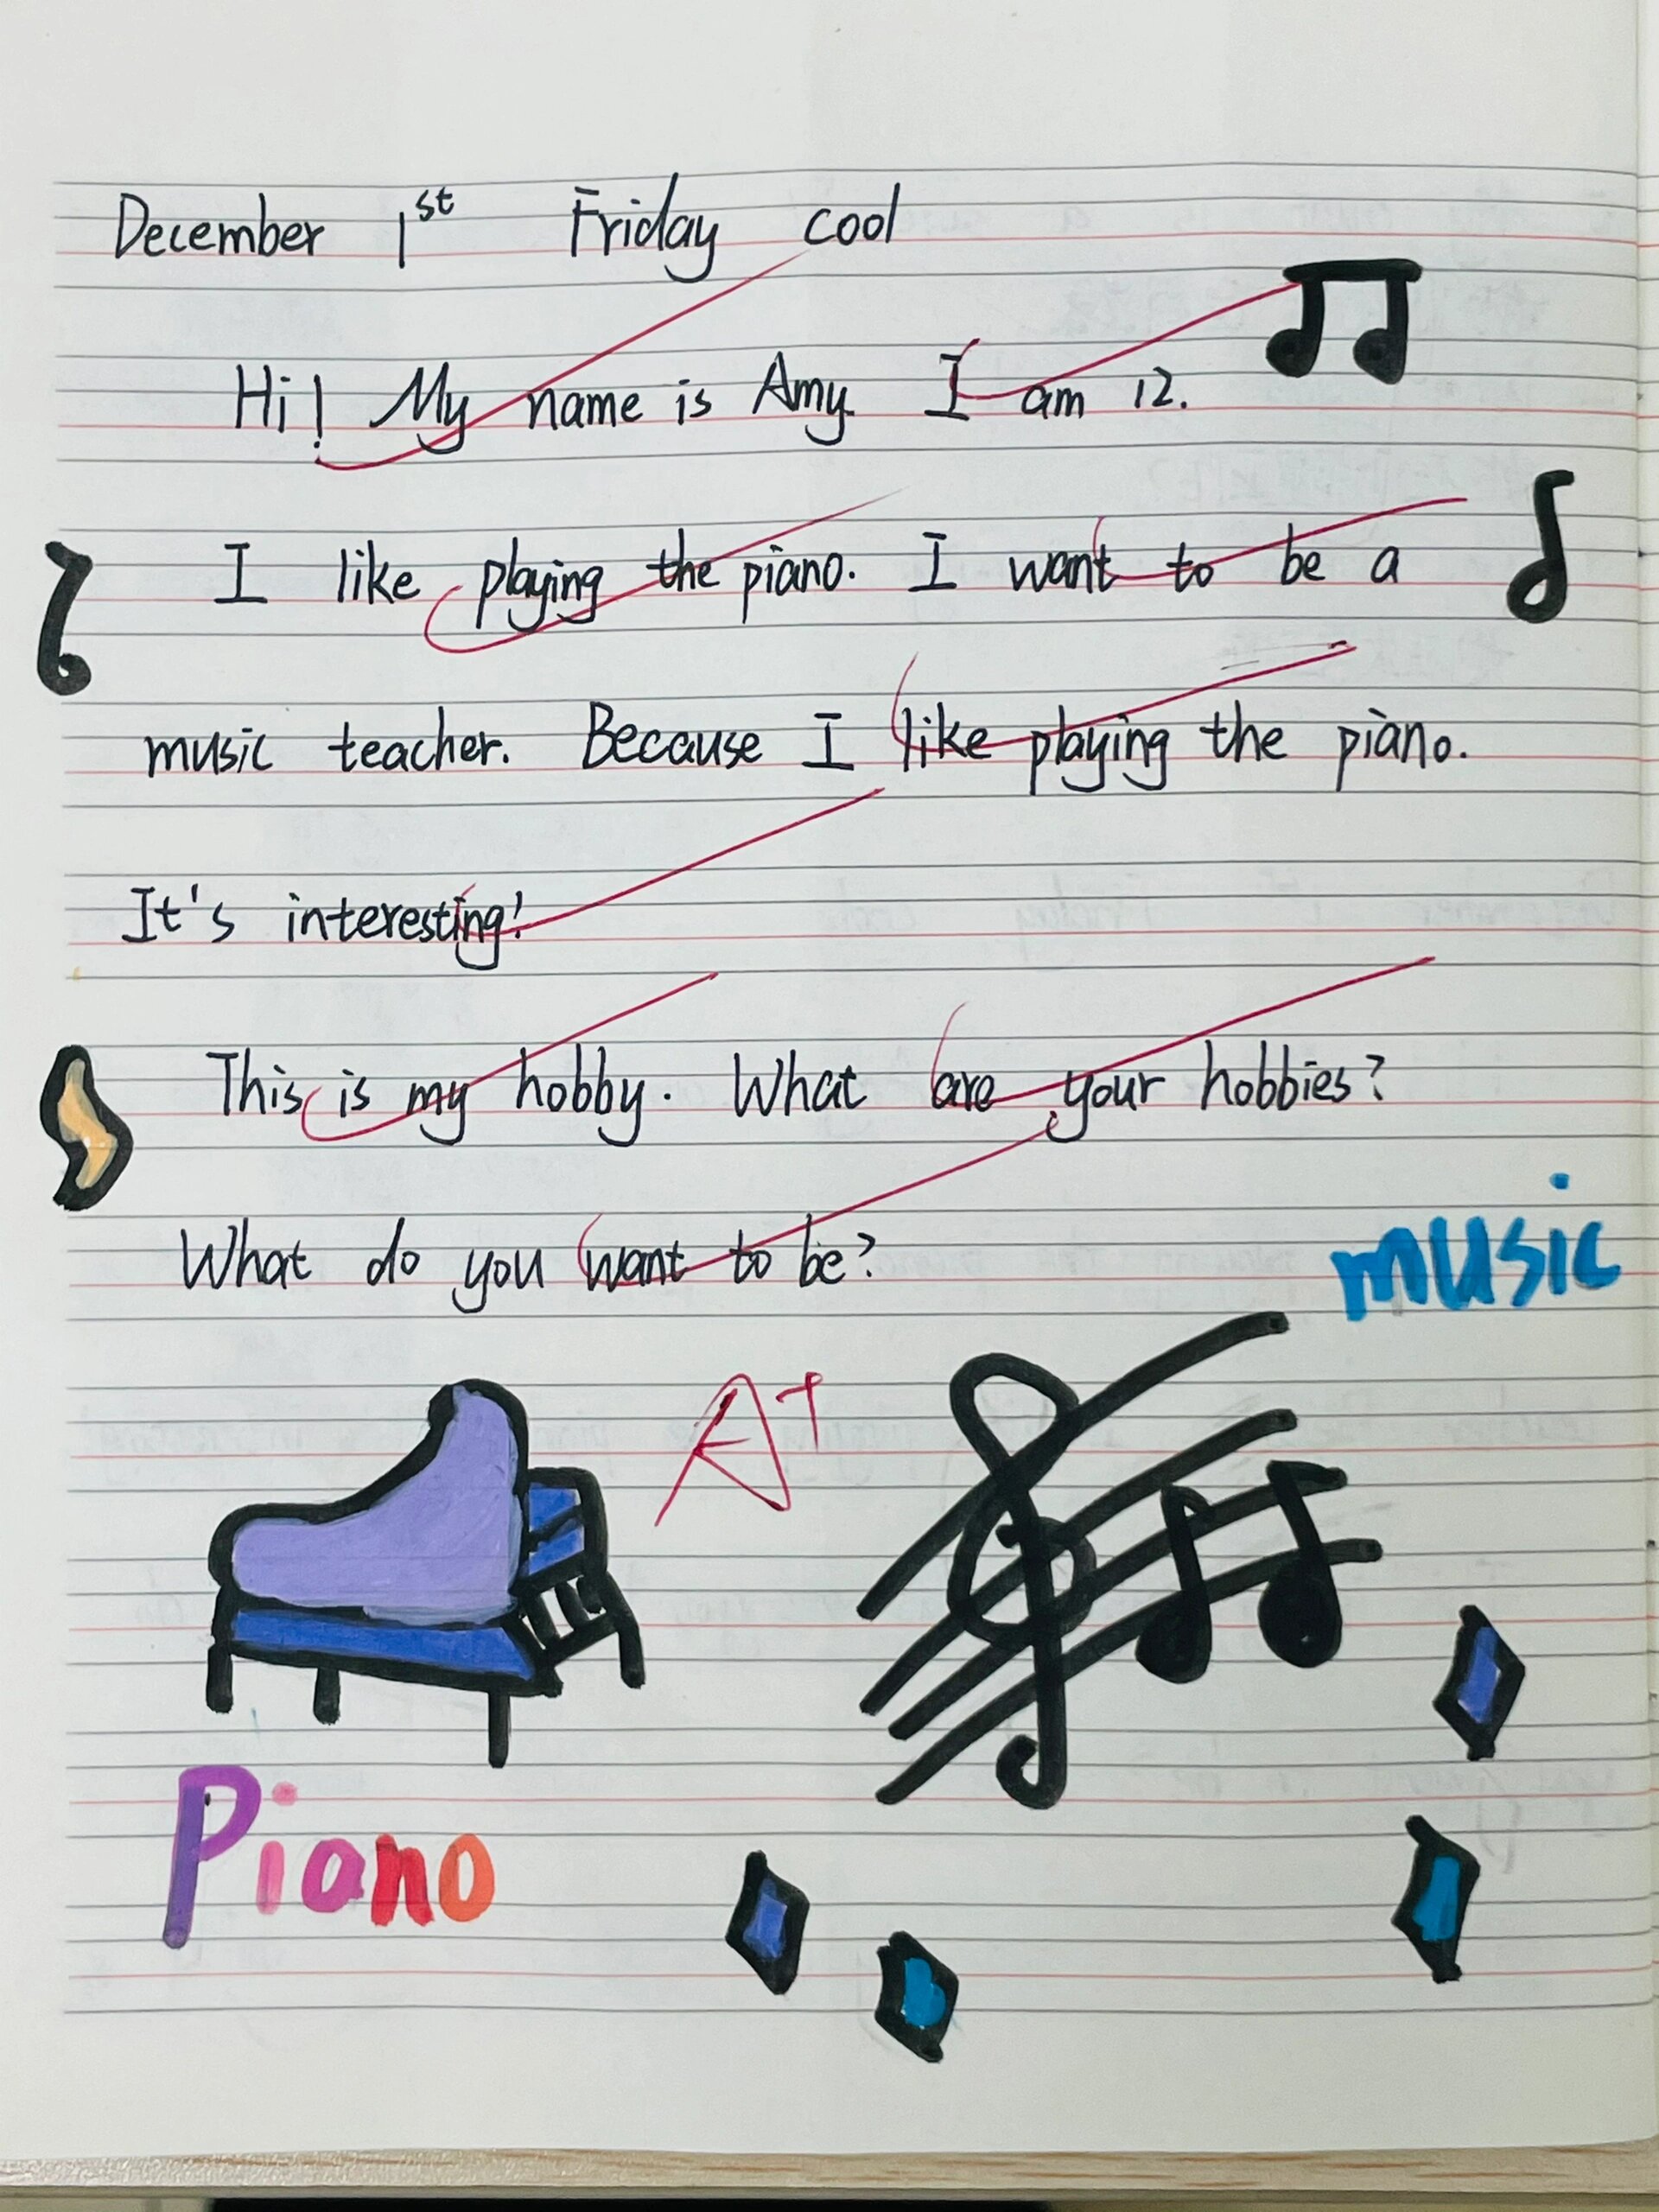 December 1st Friday cool
Hi! My name is Amy. I am 12.
I like playing the piano. I want to be a
music teacher. Because I like playing the piano.
It's interesting!
This is my hobby. What are your hobbies?
What do you want to be?
music
A+
Piano